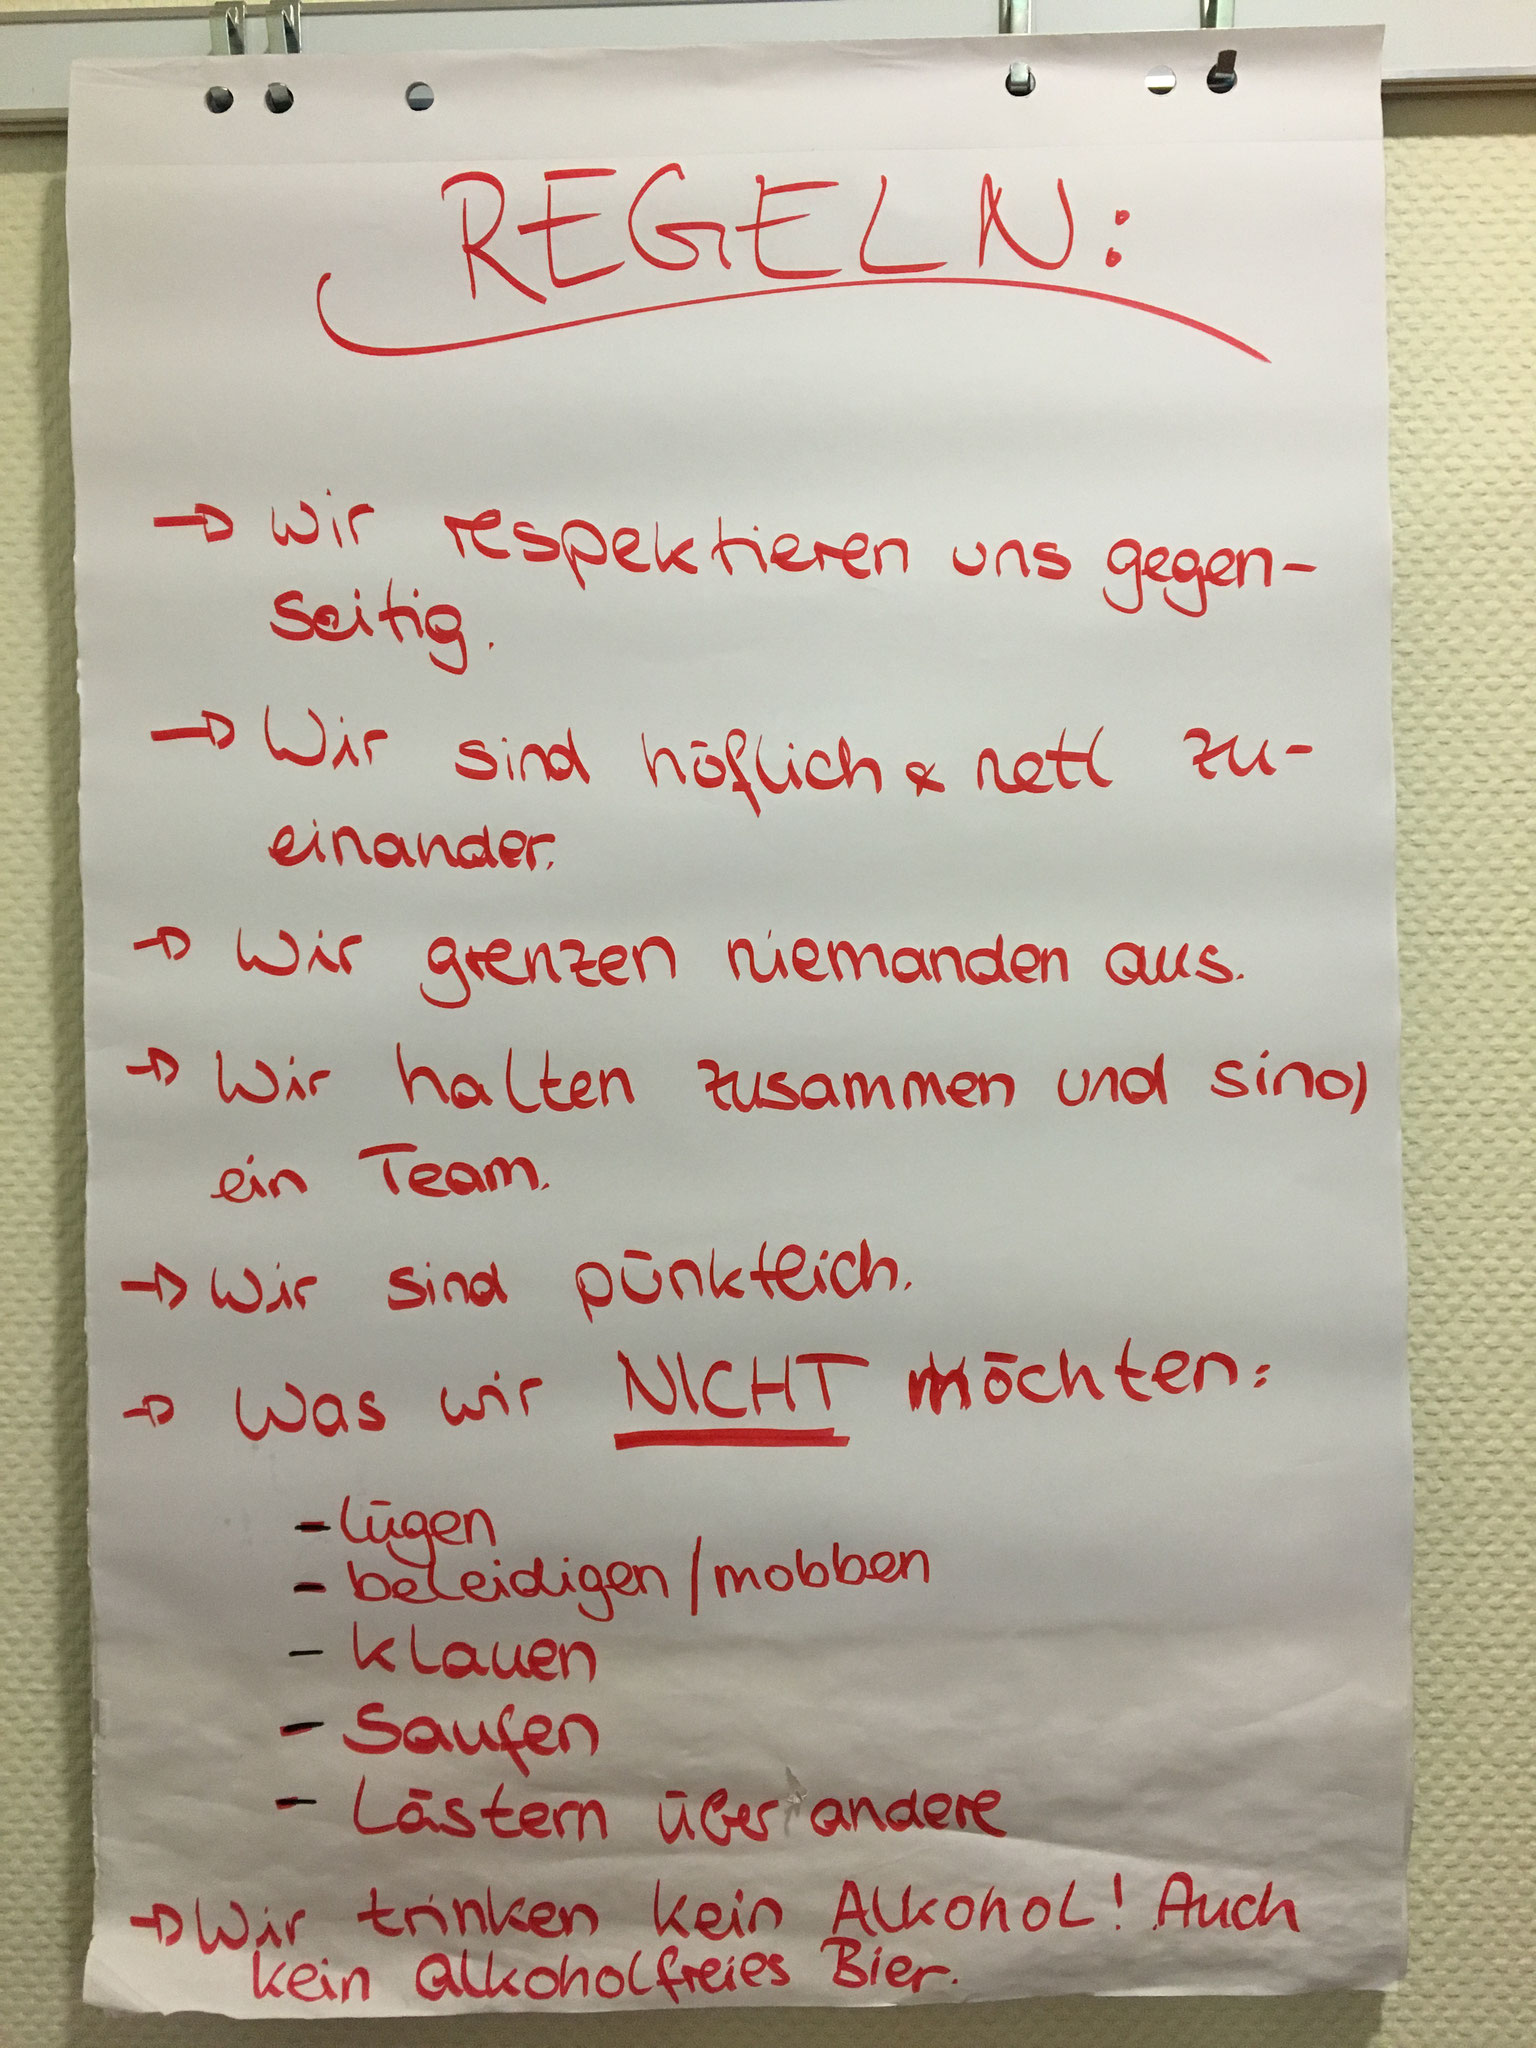 REGELN:
→ Wir respektieren uns gegen-
seitig.
→ Wir sind höflich & nett zu-
einander.
→ Wir grenzen niemanden aus.
→ Wir halten zusammen und sind
ein Team.
→ Wir sind pünktlich.
→ Was wir NICHT möchten:
- lügen
- beleidigen/mobben
- klauen
- Saufen
- Lästern über andere
→ Wir trinken kein Alkohol! Auch
kein alkoholfreies Bier.